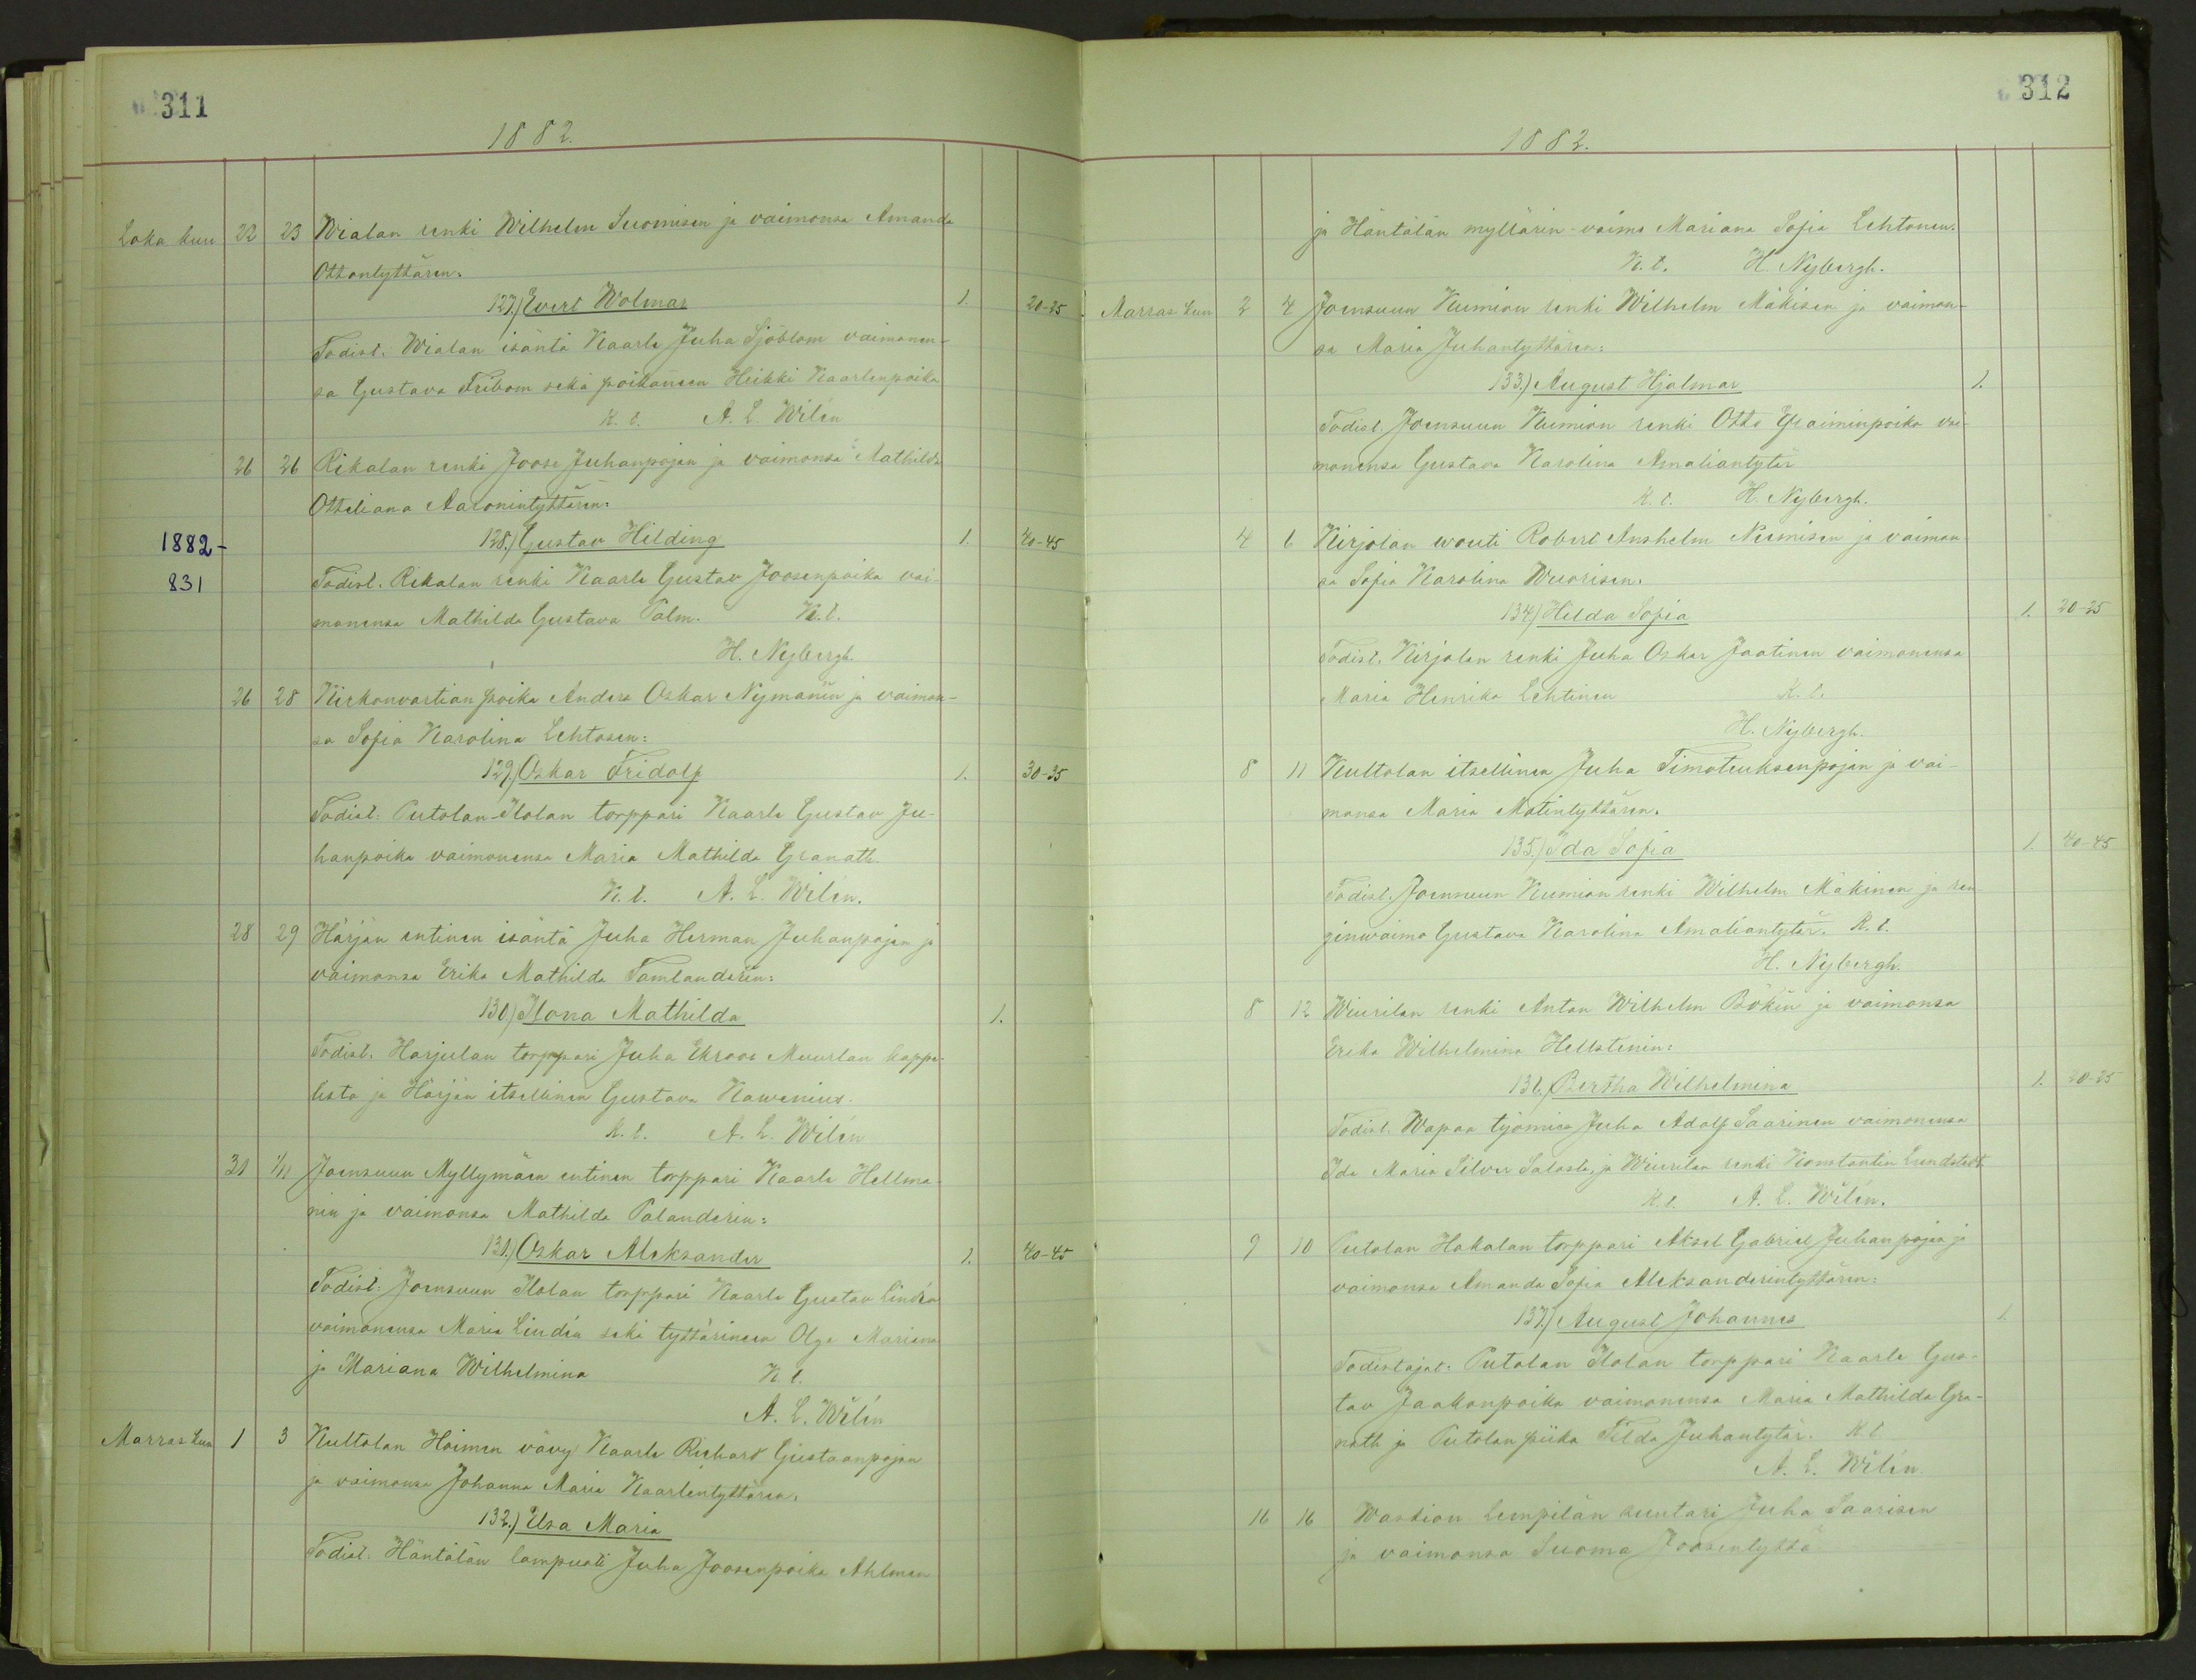 311
1882.
Loka kuu 22 23 Wialan renki Wilhelm Suomisen ja vaimonsa Amanda
Ottontyttären.
127.) Evert Wolmar 1. 20-25
Todist. Wialan isäntä Kaarle Juha Sjöblom vaimonen-
sa Gustava Fribom sekä poikaneen Heikki Kaarlenpoika
K. t. A. L. Wilén
26 26 Rikalan renki Joose Juhanpojan ja vaimonsa Mathilda
Otteliana Aaronintyttären:
1882- 128.) Gustav Hilding 1. 40-45
831 Todist. Rikalan renki Kaarle Gustav Joosenpoika vai-
monensa Mathilda Gustava Palm. K. t.
H. Nybergh
26 28 Kirkonvartian poika Anders Oskar Nymanin ja vaimon-
sa Sofia Karolina Lehtosen:
129.) Oskar Fridolf 1. 30-35
Todist: Putolan-Ilolan torppari Kaarle Gustav Ju-
hanpoika vaimonensa Maria Mathilda Granath.
K. t. A. L. Wilén.
28 29 Härjän entinen isäntä Juha Herman Juhanpojan ja
vaimonsa Erika Mathilda Tamlanderin:
130.) Ilona Mathilda 1.
Todist. Harjulan torppari Juha Ekroos Muurlan kappe-
lista ja Härjän itsellinen Gustava Nawenius.
K. t. A. L. Wilén
31 1/11 Joensuun Myllymäen entinen torppari Kaarle Hellma-
nin ja vaimonsa Mathilda Palanderin:
131.) Oskar Aleksander 1. 40-45
Todist: Joensuun Ilolan torppari Kaarle Gustav Lindén
vaimonensa Maria Lindén sekä tyttärineen Olga Mariana
ja Mariana Wilhelmina K. t.
A. L. Wilén
Marras kuu 1 3 Kultolan Hoimen vävy Kaarle Richard Gustaanpojan
ja vaimonsa Johanna Maria Kaarlentyttären.
132.) Elsa Maria
Todist: Häntälän lampuoti Juha Joosenpoika Ahlman
312
1882.
ja Häntälän myllärin-vaimo Mariana Sofia Lehtonen.
K. t. H. Nybergh.
Marras kuu 2 4 Joensuun Kumion renki Wilhelm Mäkisen ja vaimon-
sa Maria Juhantyttären:
133.) August Hjalmar 1.
Todist. Joensuun Kumion renki Otto Efraiminpoika vai-
monensa Gustava Karolina Amaliantytär
K. t. H. Nybergh.
4 6 Kirjolan wouti Robert Anshelm Niemisen ja vaimon-
sa Sofia Karolina Wuorisen.
134.) Hilda Sofia 1. 20-25
Todist. Kirjolan renki Juha Oskar Jaatinen vaimonensa
Maria Henrika Lehtinen K. t.
H. Nybergh.
8 11 Kultolan itsellinen Juha Timoteuksenpojan ja vai-
monsa Maria Matintyttären.
135.) Ida Sofia 1. 40-45
Todist. Joensuun Kumion renki Wilhelm Mäkinen ja ren-
ginwaimo Gustava Karolina Amaliantytär. K. t.
H. Nybergh.
8 12 Wiurilan renki Anton Wilhelm Bökin ja vaimonsa
Erika Wilhelmina Hellstenin:
136.) Bertha Wilhelmina 1. 20-25
Todist. Wapaa työmies Juha Adolf Saarinen vaimonensa
Ida Maria Silver Salosta, ja Wiurilan renki Konstantin Lundstedt
K. t. A. L. Wilén.
9 10 Putolan Hakalan torppari Aksel Gabriel Juhanpojan ja
vaimonsa Amanda Sofia Aleksanderintyttären:
137.) August Johannes 1.
Todistajat: Putolan Ilolan torppari Kaarle Gus-
tav Jaakonpoika vaimonensa Maria Mathilda Gra-
nath ja Putolan piika Tilda Juhantytär. K. t.
A. L. Wilén
16 16 Waskion Lempilän suutari Juha Saarisen
ja vaimonsa Suoma Joosentyttä